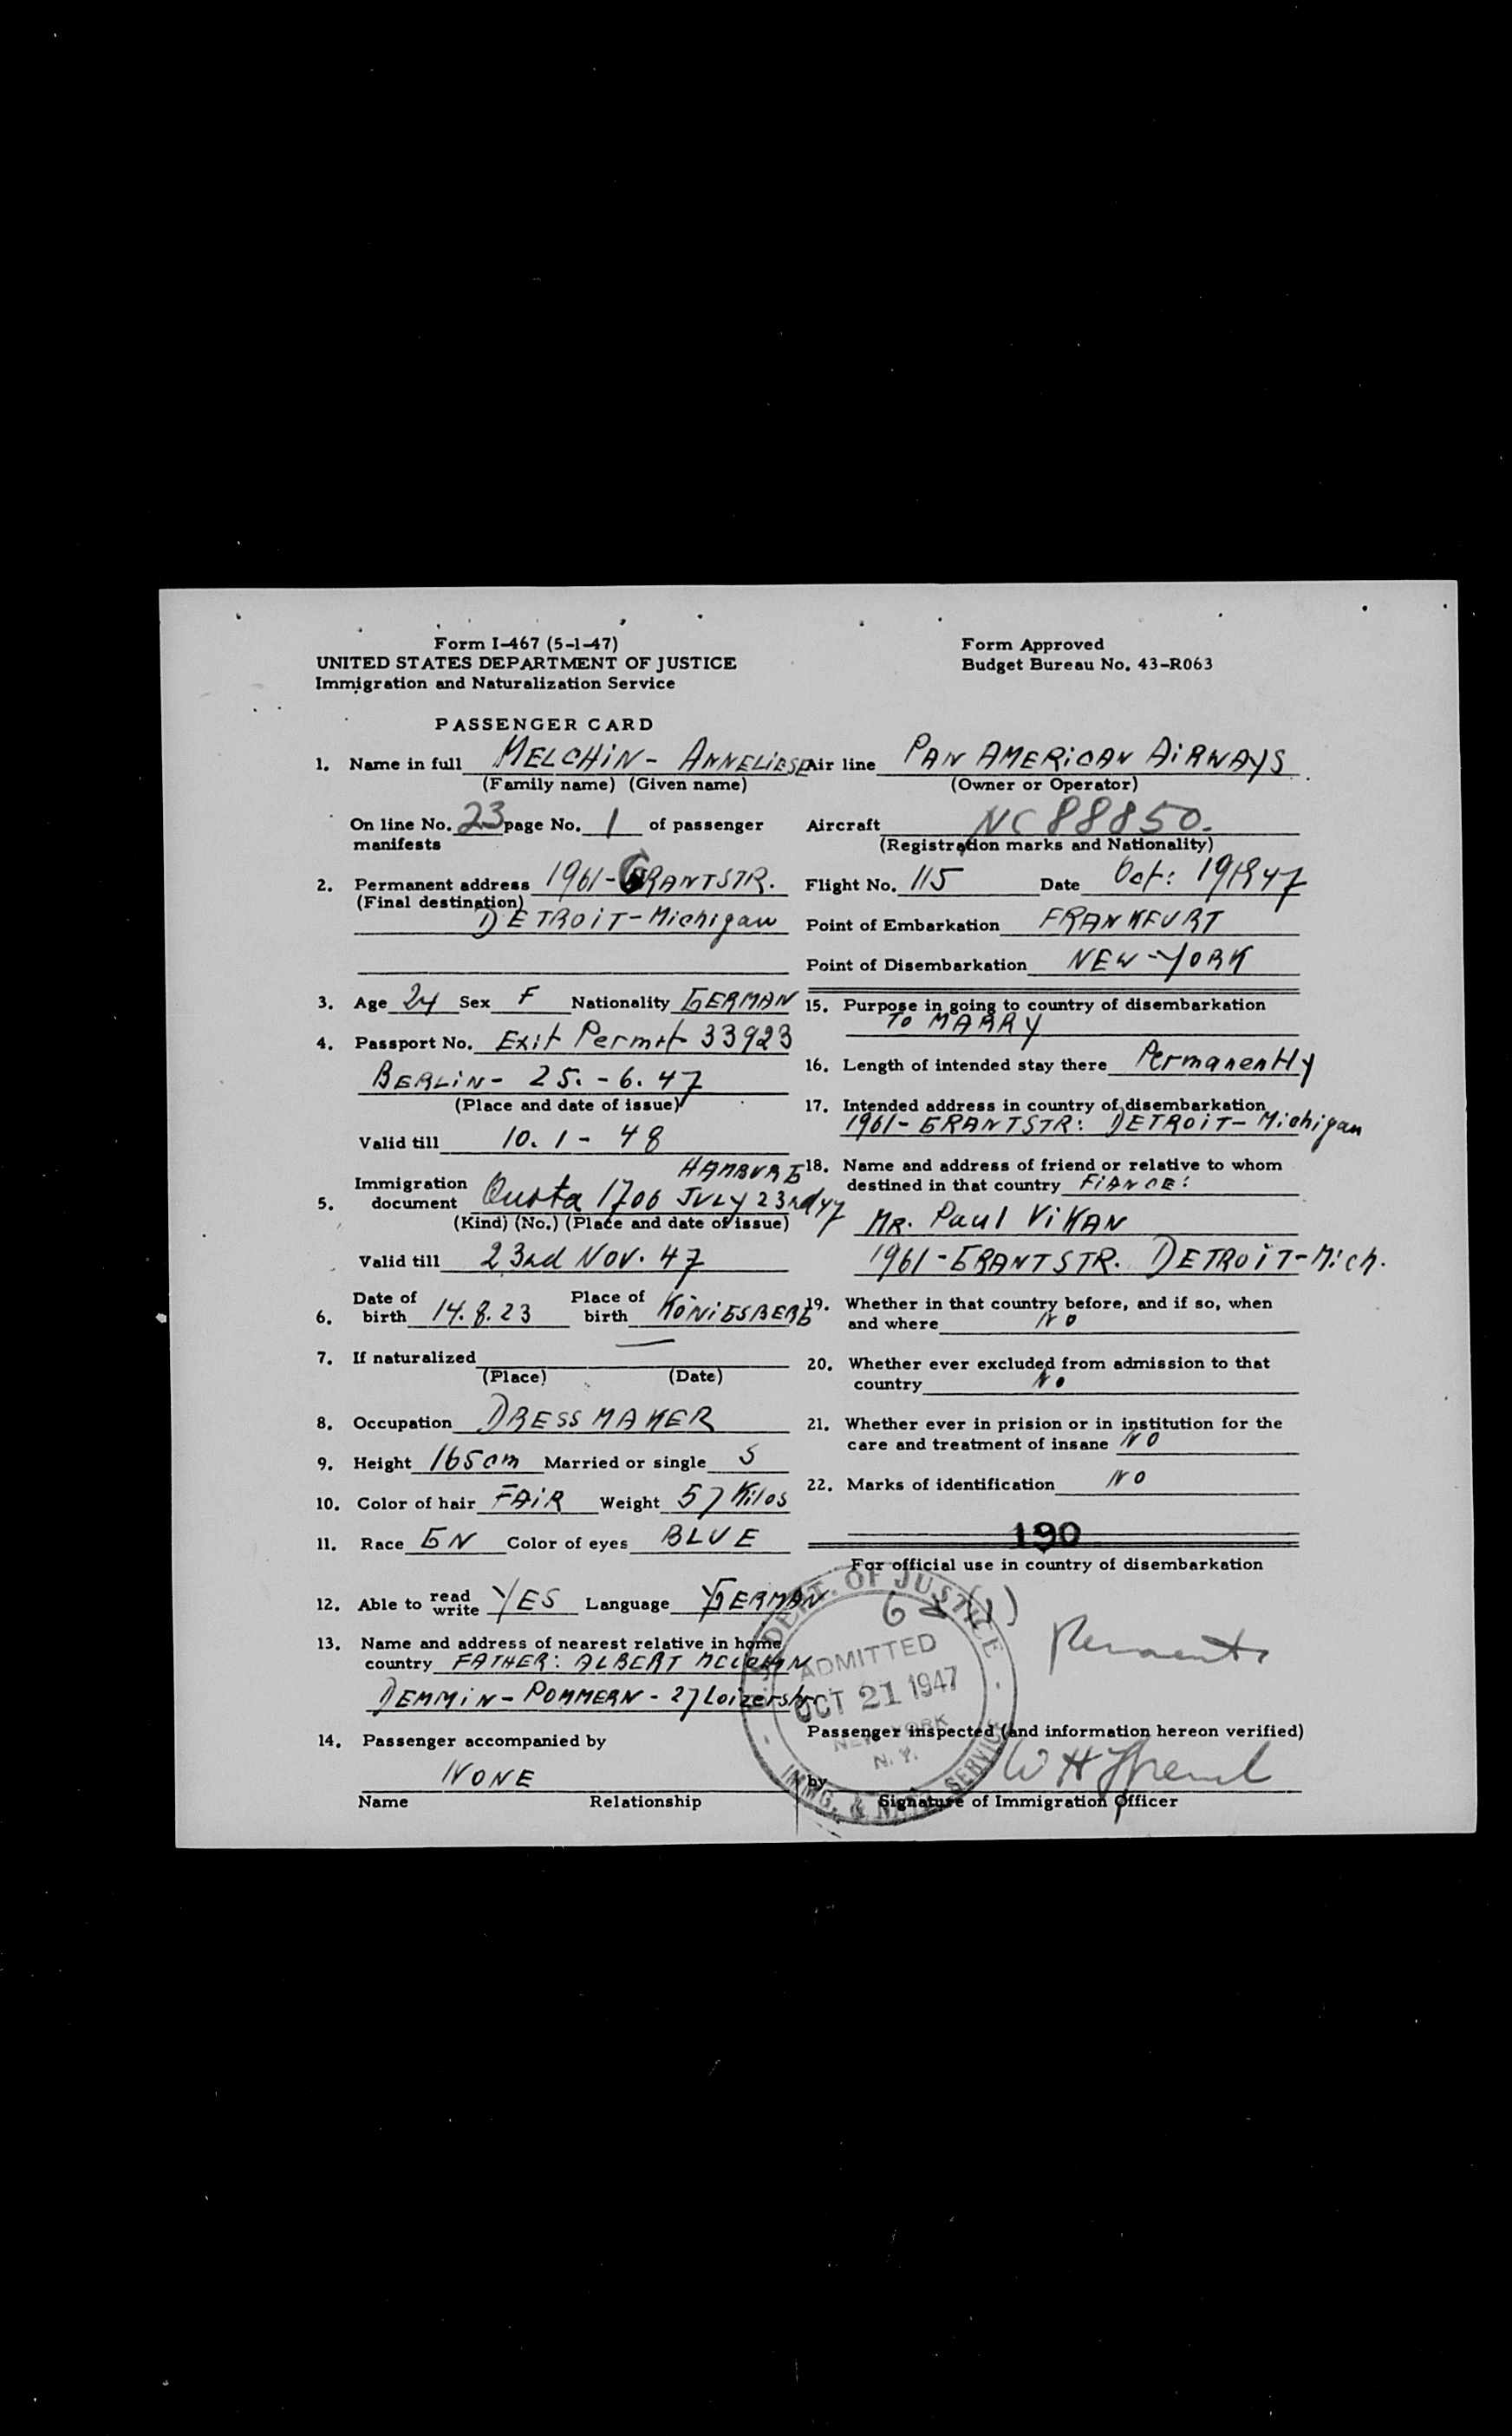 Form I-467 (5-1-47)
UNITED STATES DEPARTMENT OF JUSTICE
Immigration and Naturalization Service
Form Approved
Budget Bureau No. 43-R063
PASSENGER CARD
1. Name in full MELCHIN - ANNELIESE
(Family name) (Given name)
On line No. 23 page No. 1 of passenger
manifests
2. Permanent address 1961-GRANTSTR.
(Final destination)
DETROIT-Michigan
3. Age 24 Sex F Nationality GERMAN
4. Passport No. Exit Permit 33923
BERLIN - 25. - 6. 47
(Place and date of issue)
Valid till 10. 1 - 48
HAMBURG
5. Immigration document Quota 1706 JULY 23rd 47
(Kind) (No.) (Place and date of issue)
Valid till 23rd NOV. 47
6. Date of birth 14. 8. 23 Place of birth KÖNIGSBERG
7. If naturalized —
(Place) (Date)
8. Occupation DRESSMAKER
9. Height 165 cm Married or single S
10. Color of hair FAIR Weight 57 Kilos
11. Race GN Color of eyes BLUE
12. Able to read write YES Language GERMAN
13. Name and address of nearest relative in home
country FATHER: ALBERT MELCHIN
DEMMIN - POMMERN - 27
14. Passenger accompanied by
NONE
Name Relationship
Air line PAN AMERICAN AIRWAYS
(Owner or Operator)
Aircraft NC 88850.
(Registration marks and Nationality)
Flight No. 115 Date Oct:
Point of Embarkation FRANKFURT
Point of Disembarkation NEW-YORK
15. Purpose in going to country of disembarkation
TO MARRY
16. Length of intended stay there Permanently
17. Intended address in country of disembarkation
1961- GRANTSTR: DETROIT- Michigan
18. Name and address of friend or relative to whom
destined in that country FIANCE:
MR. Paul ViKAN
1961 - GRANTSTR. DETROIT-Mich.
19. Whether in that country before, and if so, when
and where NO
20. Whether ever excluded from admission to that
country NO
21. Whether ever in prision or in institution for the
care and treatment of insane NO
22. Marks of identification NO
190
For official use in country of disembarkation
U.S. DEPT. OF JUSTICE
ADMITTED
OCT 21 1947
NEW YORK
N. Y.
IMMG. & NATZ. SERVICE
Passenger inspected (and information hereon verified)
by
Signature of Immigration Officer